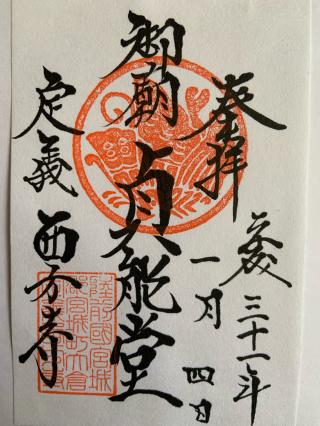 奉拝
平成三十一年
一月四日
御廟
貞能堂
定義
西方寺
陸前國宮城
郡宮城町大倉